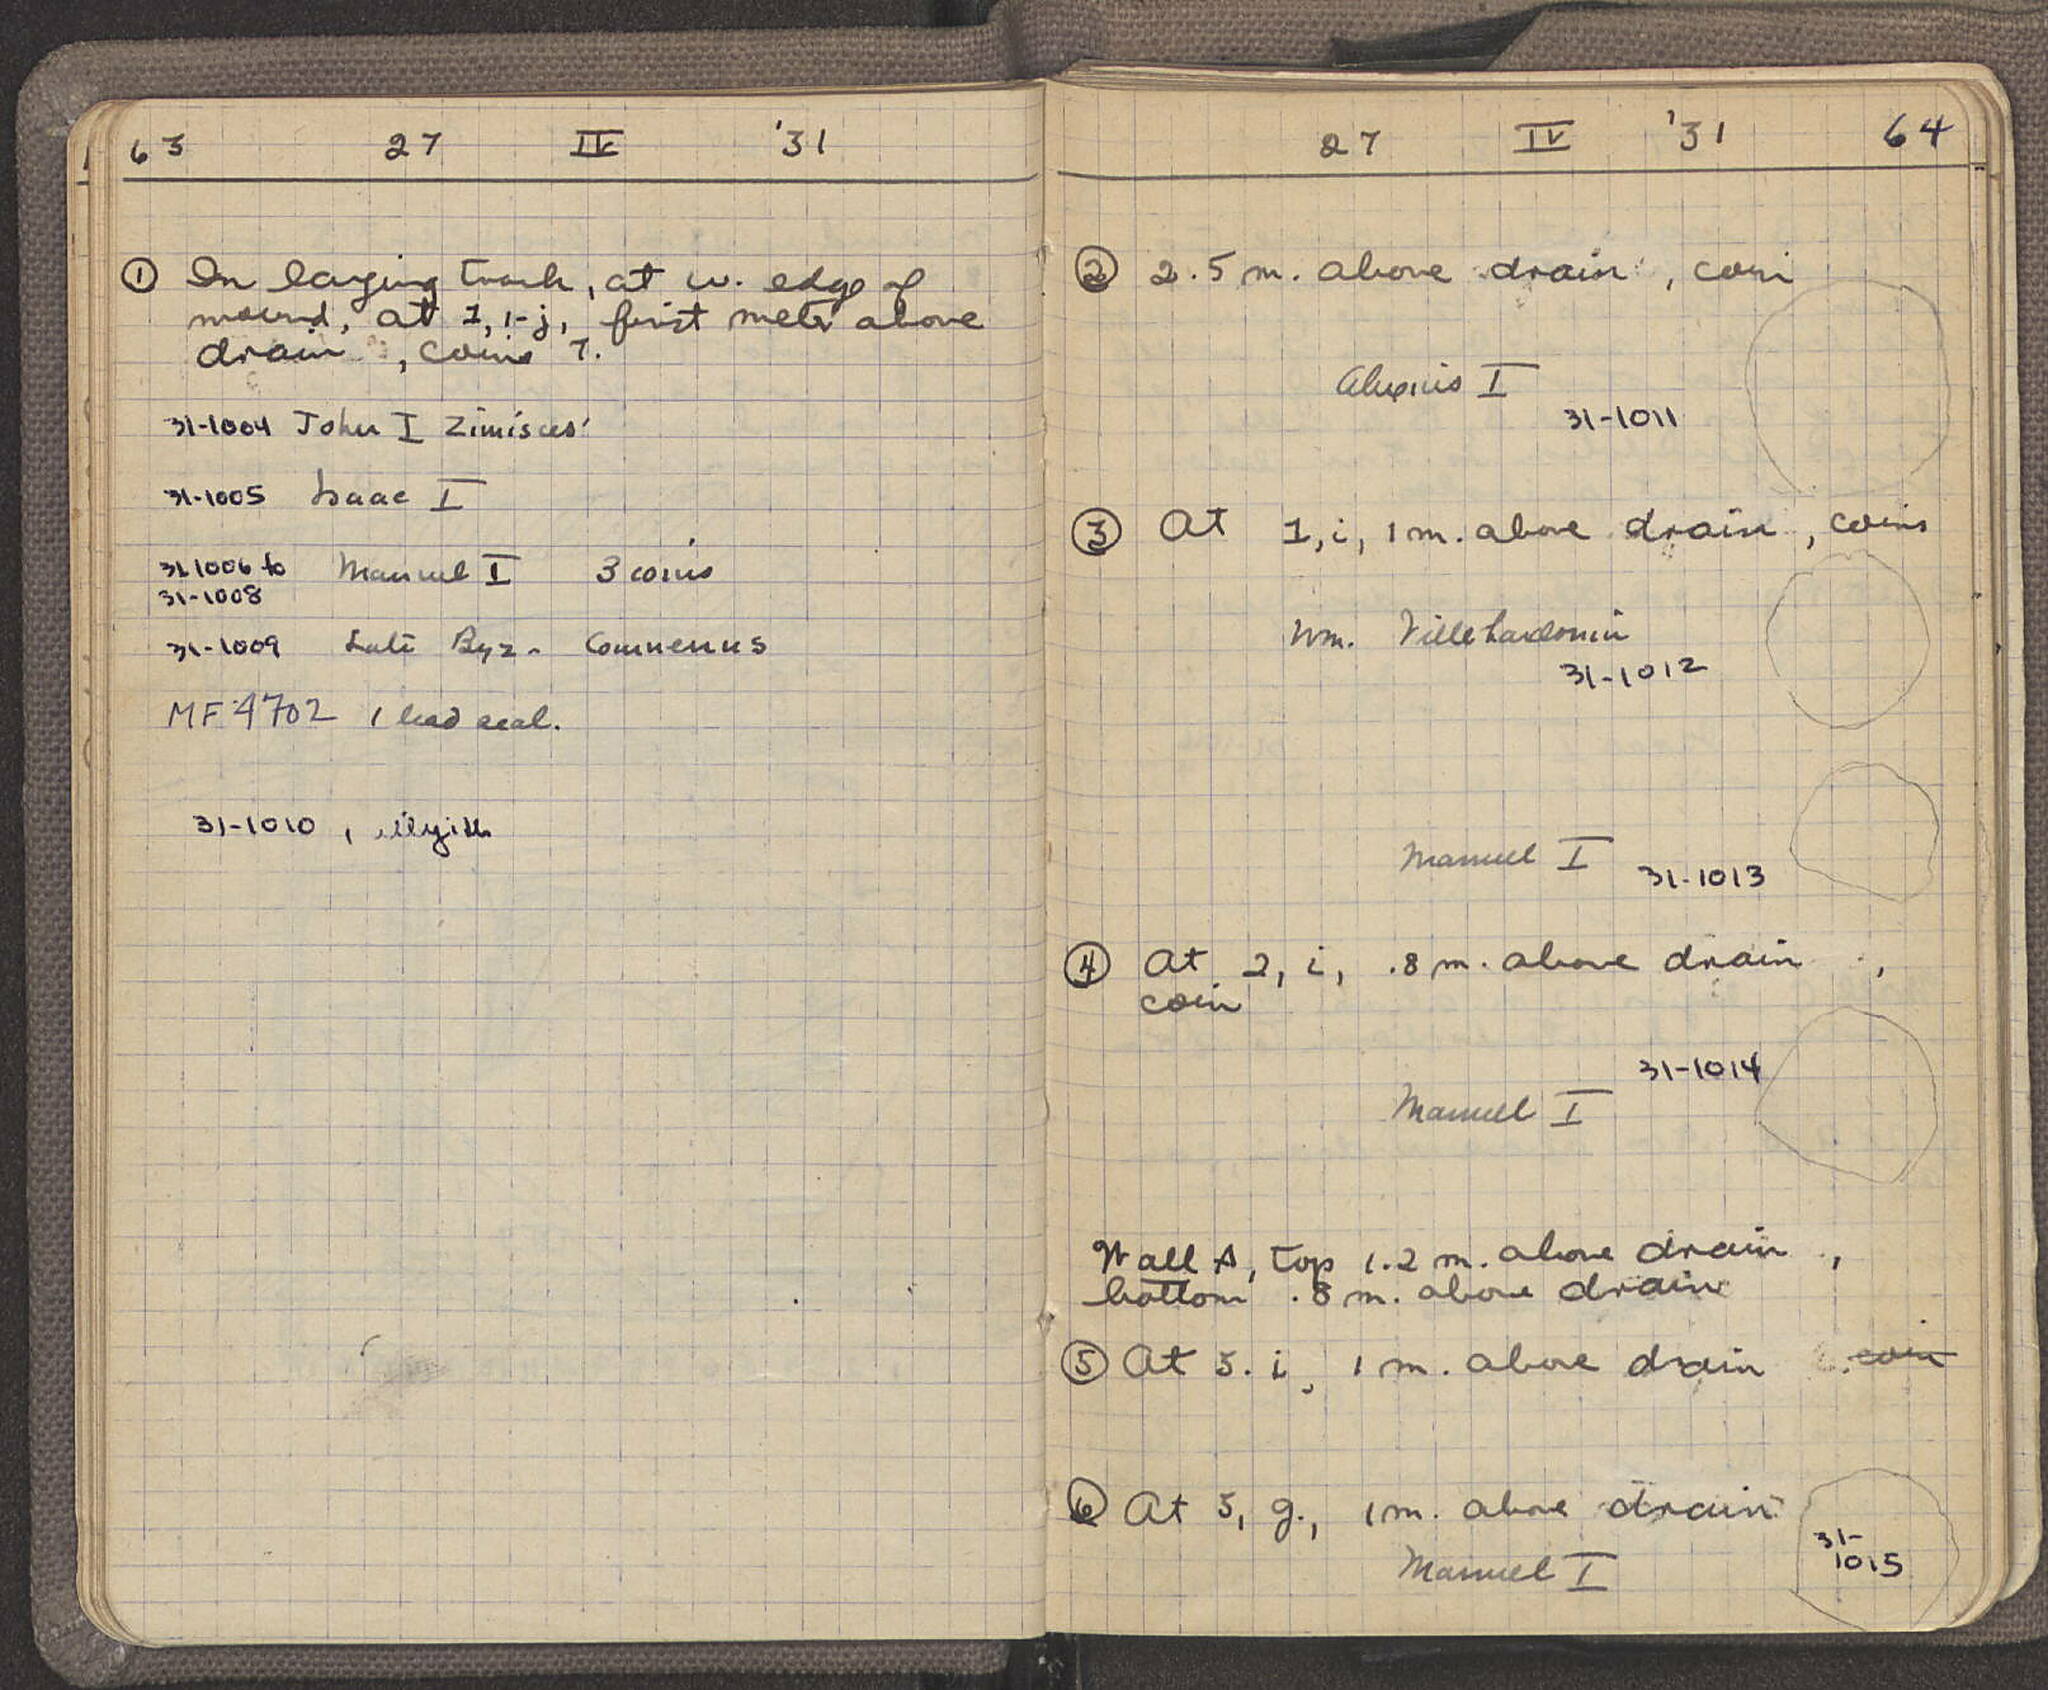 63 27 IV '31
① In laying track, at w. edge of
mound, at 1, i-j, first meter above
drain, coins 7.
31-1004 John I Zimisces
31-1005 Isaac I
31-1006 to Manuel I 3 coins
31-1008
31-1009 Late Byz- Comnenus
MF 4702 1 lead seal.
31-1010, illegible
27 IV '31 64
② 2.5 m. above drain, coin
Alexius I
31-1011
③ At 1, i, 1 m. above drain, coins
Wm. Villehardouin
31-1012
Manuel I 31-1013
④ At 2, i, .8 m. above drain,
coin
31-1014
Manuel I
Wall A, top 1.2 m. above drain,
bottom .8 m. above drain
⑤ At 5. i, 1 m. above drain coin
⑥ At 5, g., 1 m. above drain
31-
1015
Manuel I